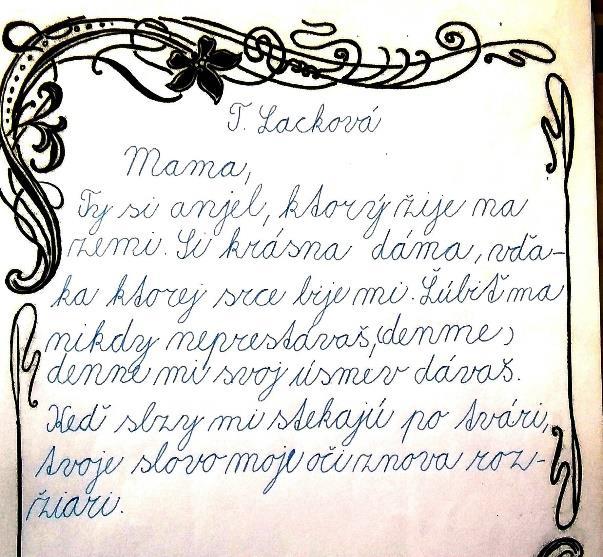 T. Lacková
Mama,
Ty si anjel, ktorý žije na
zemi. Si krásna dáma, vďa-
ka ktorej srce bije mi. Ľúbiť ma
nikdy neprestávaš, denne,
denne mi svoj úsmev dávaš.
Keď slzy mi stekajú po tvári,
tvoje slovo moje oči znova roz-
žiari.